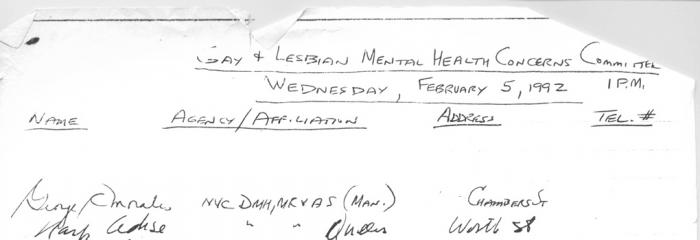 GAY & LESBIAN MENTAL HEALTH CONCERNS COMMITTEE
WEDNESDAY, FEBRUARY 5, 1992 1 P.M.
NAME AGENCY/AFFILIATION ADDRESS TEL. #
George NYC DMH, MR & AS (MAN.) CHAMBERS ST
" " Queens Worth St